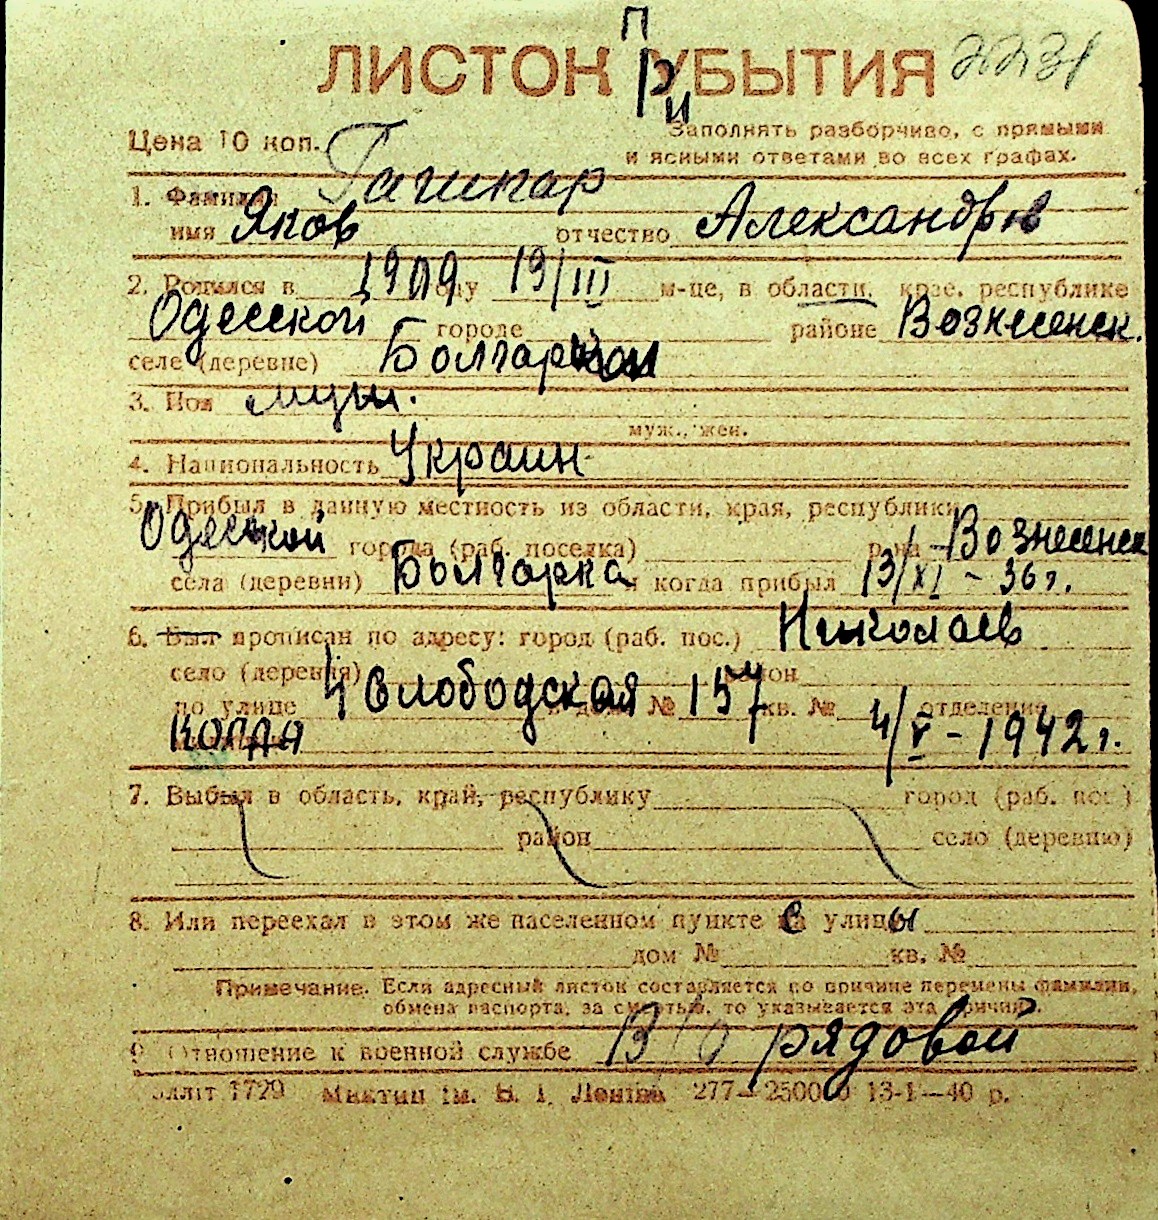 ЛИСТОК ПРИБЫТИЯ 2231
Цена 10 коп. Заполнять разборчиво, с прямыми
и ясными ответами во всех графах.
1. Фамилия Гашкар
имя Яков отчество Александров
2. Родился в 1909 году 19/III м-це, в области, крае, республике
Одесской городе районе Вознесенск.
селе (деревне) Болгаркой
3. Пол муж.
муж., жен.
4. Национальность Украин
5. Прибыл в данную местность из области, края, республики
Одесской города (раб. поселка) р-на Вознесенск
села (деревни) Болгарка и когда прибыл 13/XI - 36 г.
6. Был прописан по адресу: город (раб. пос.) Николаев
село (деревня) район
по улице 4 Слободская дом № 157 кв. № отделение
когда 4/V - 1942 г.
7. Выбыл в область, край, республику город (раб. пос.)
район село (деревню)
8. Или переехал в этом же населенном пункте с улицы
дом № кв. №
Примечание. Если адресный листок составляется по причине перемены фамилии,
обмена паспорта, за смертью, то указывается эта причина.
9. Отношение к военной службе В/о рядовой
1729 ім. В. І. Леніна 277—250000 13-1—40 р.